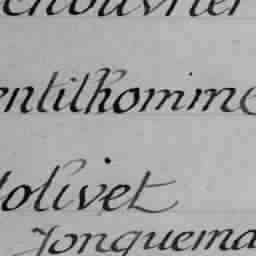 chouvrier
entilhomme
olivet
Jonquema